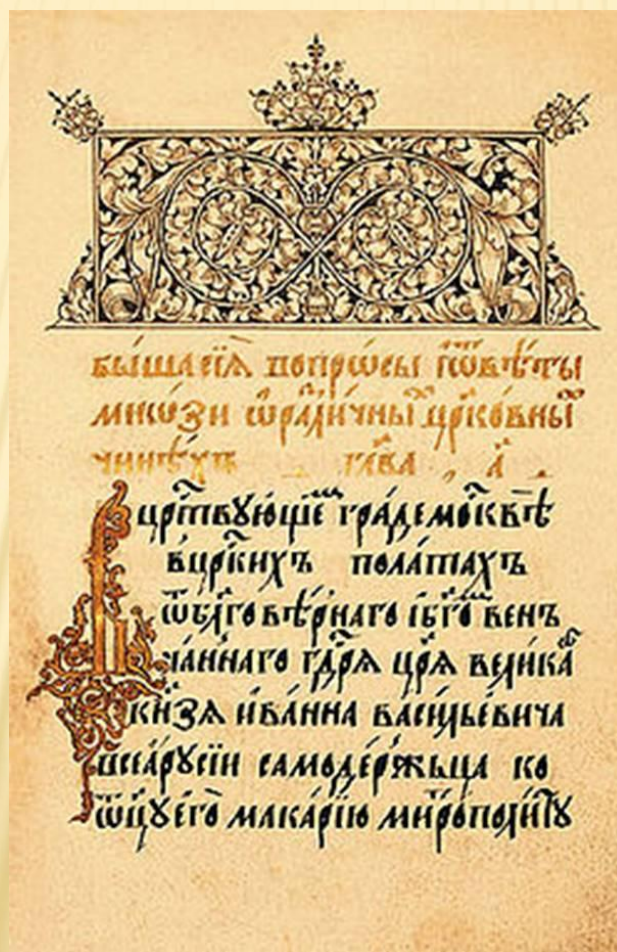 бы́ша сїѧ̀ вопрѡ́сы и҆ ѿвѣ́ты
мнѡ́зи ѡ҆ разли́чныⷯ цр҃ко́вныⷯ
чинѣ́хъ гла́ва а҃
В цр҃ствꙋ́ющеⷨ гра́де москвѣ̀
в цр҃скихъ пола́тахъ
ѿ бл҃говѣ́рнаго и҆ бг҃овѣн
ча́ннаго гдⷭ҇рѧ цр҃ѧ вели́каⷢ҇
кн҃зѧ и҆ва́нна васи́льевича
всеѧ̀ рꙋсїи самоде́ржьца ко
ѿц꙼ꙋ̀ е҆гѡ̀ мака́рїю митрополи́тꙋ